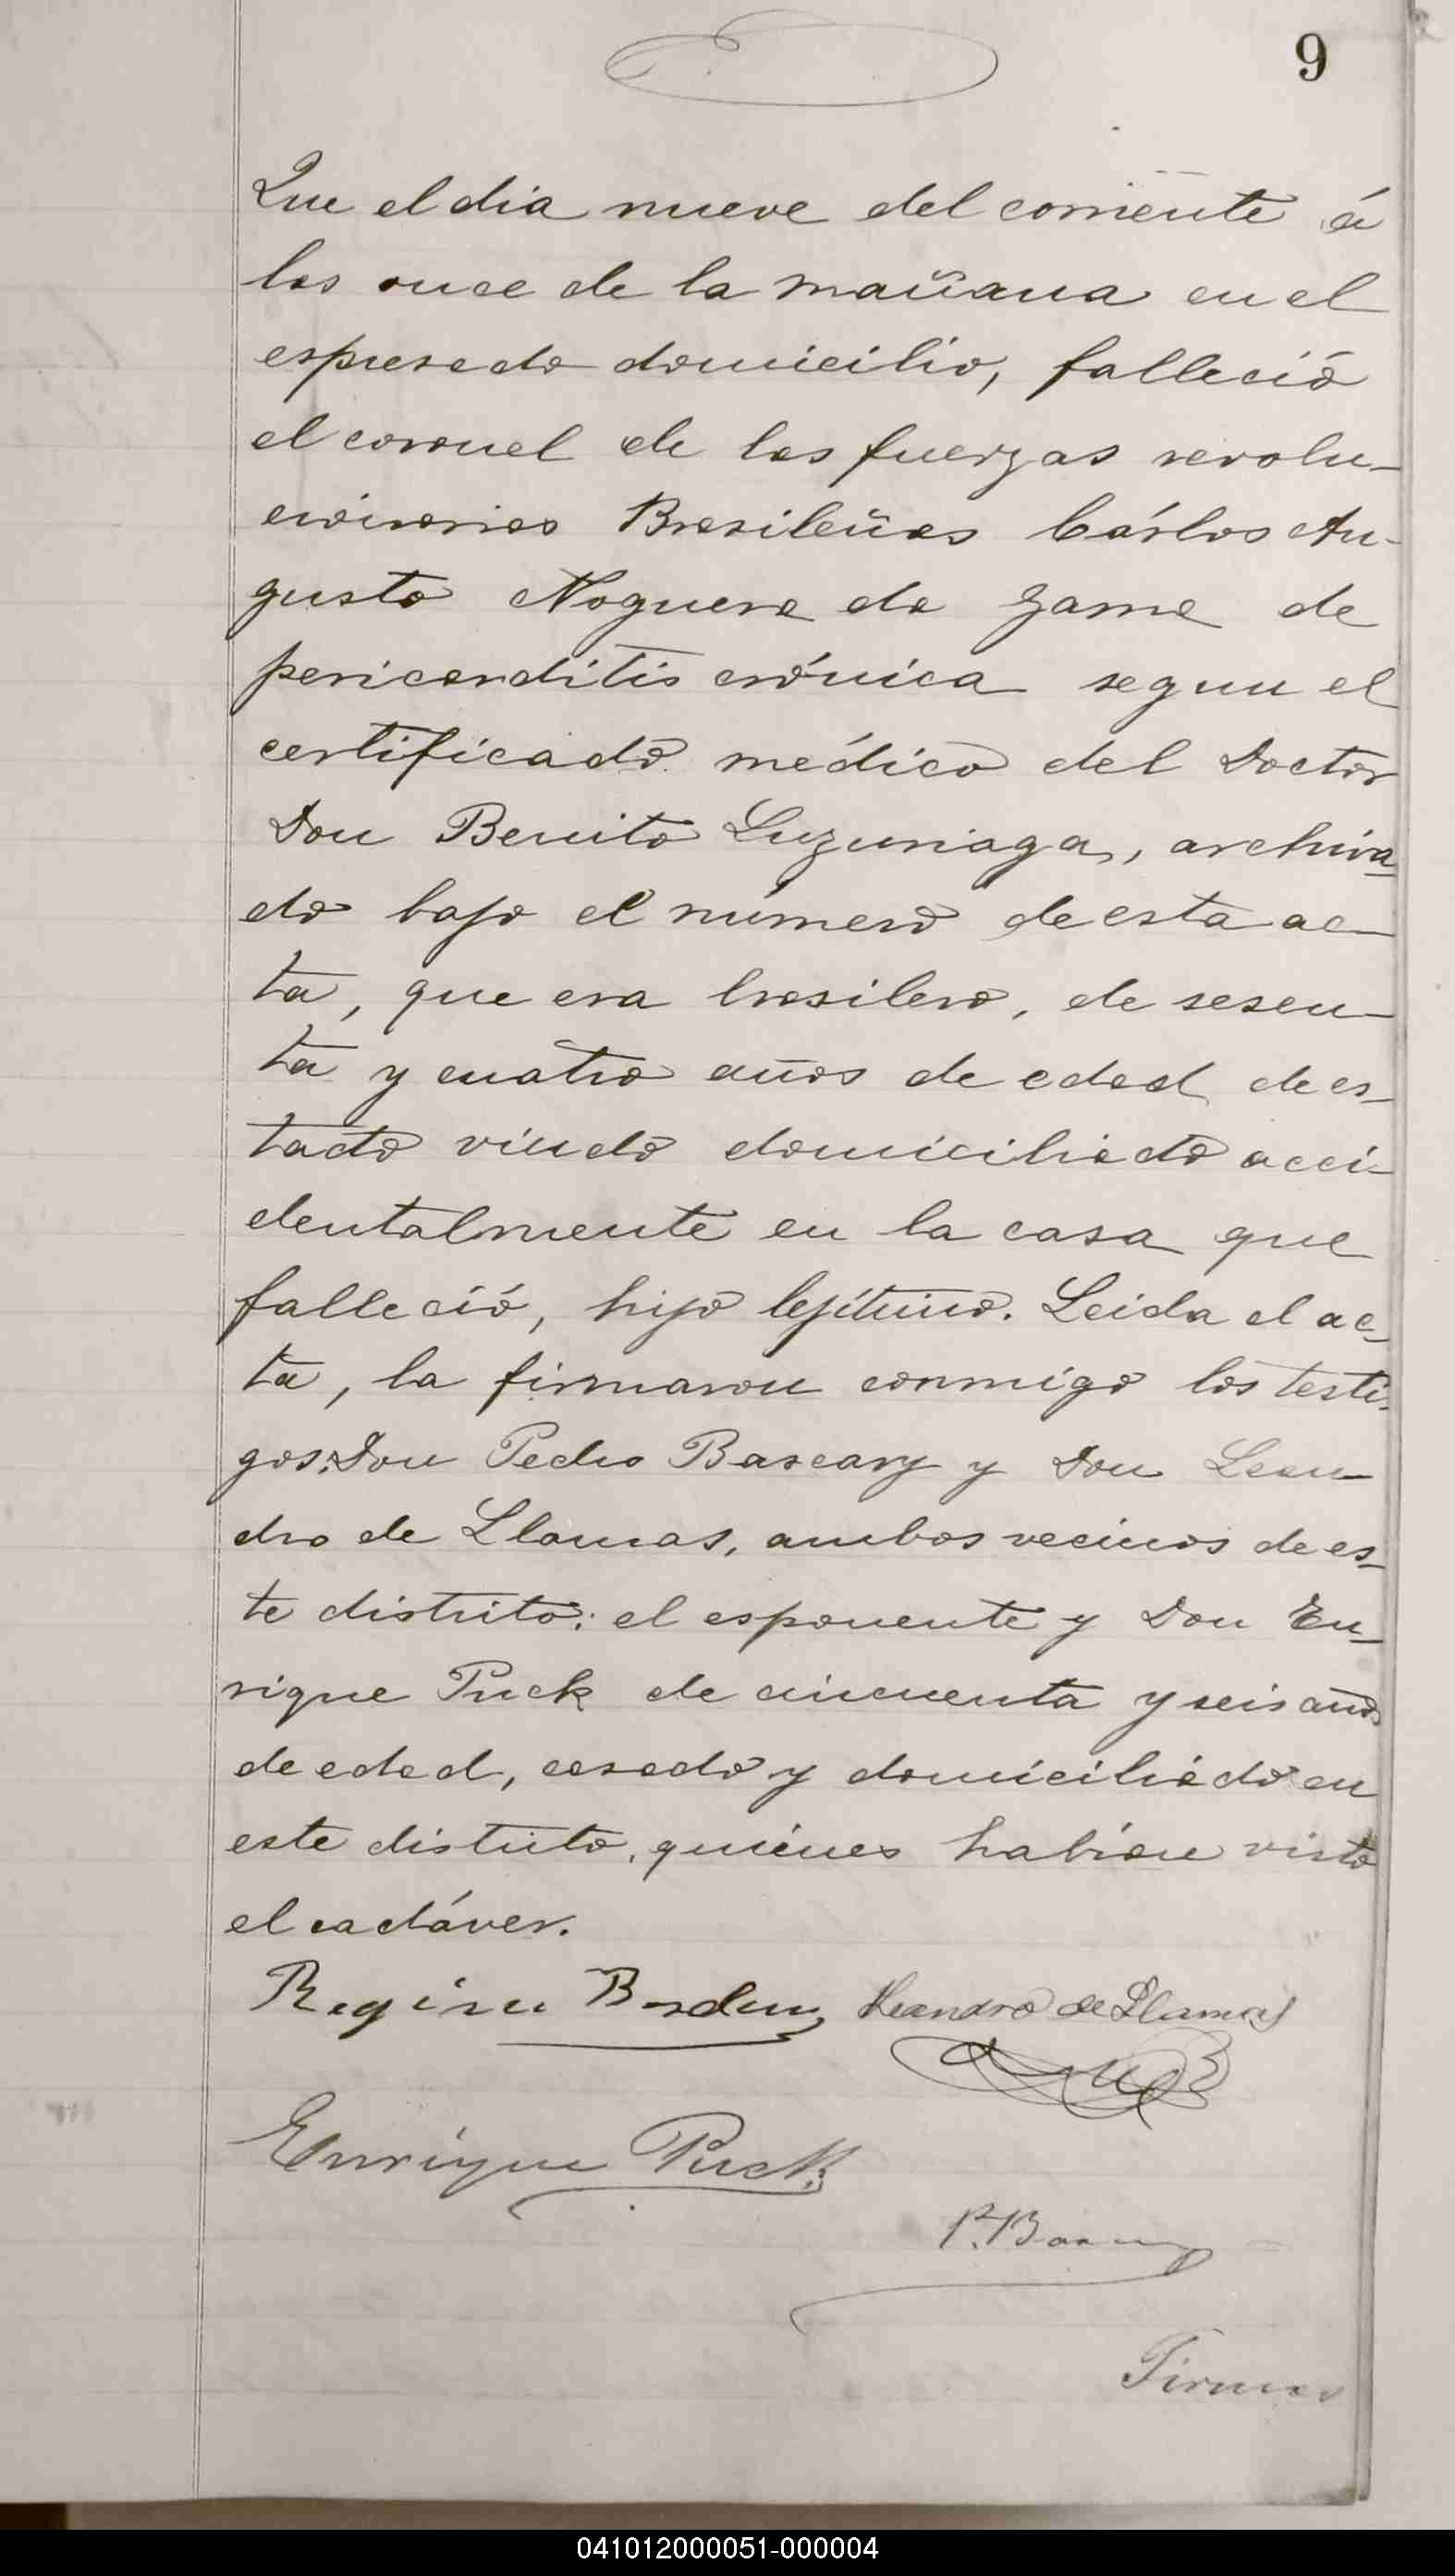 9
Que el dia nueve del corriente á
las once de la mañana en el
espresado domicilio, falleció
el coronel de las fuerzas revolu-
cionarias Brasileñas Cárlos Au-
gusto Noguera da Gama de
pericarditis crónica segun el
certificado médico del Doctor
Don Benito Luzuriaga, archiva-
do bajo el número de esta ac-
ta, que era brasilero, de sesen-
ta y cuatro años de edad de es-
tado viudo domiciliado acci-
dentalmente en la casa que
falleció, hijo lejítimo. Leida el ac-
ta, la firmaron conmigo los testi-
gos: Don Pedro Bascary y Don Lean-
dro de Llamas, ambos vecinos de es-
te distrito: el esponente y Don En-
rique Puck de cincuenta y seis años
de edad, casado y domiciliado en
este distrito, quiénes habian visto
el cadáver.
Leandro de Llamas
Enrique Puck
Firmas
041012000051-000004